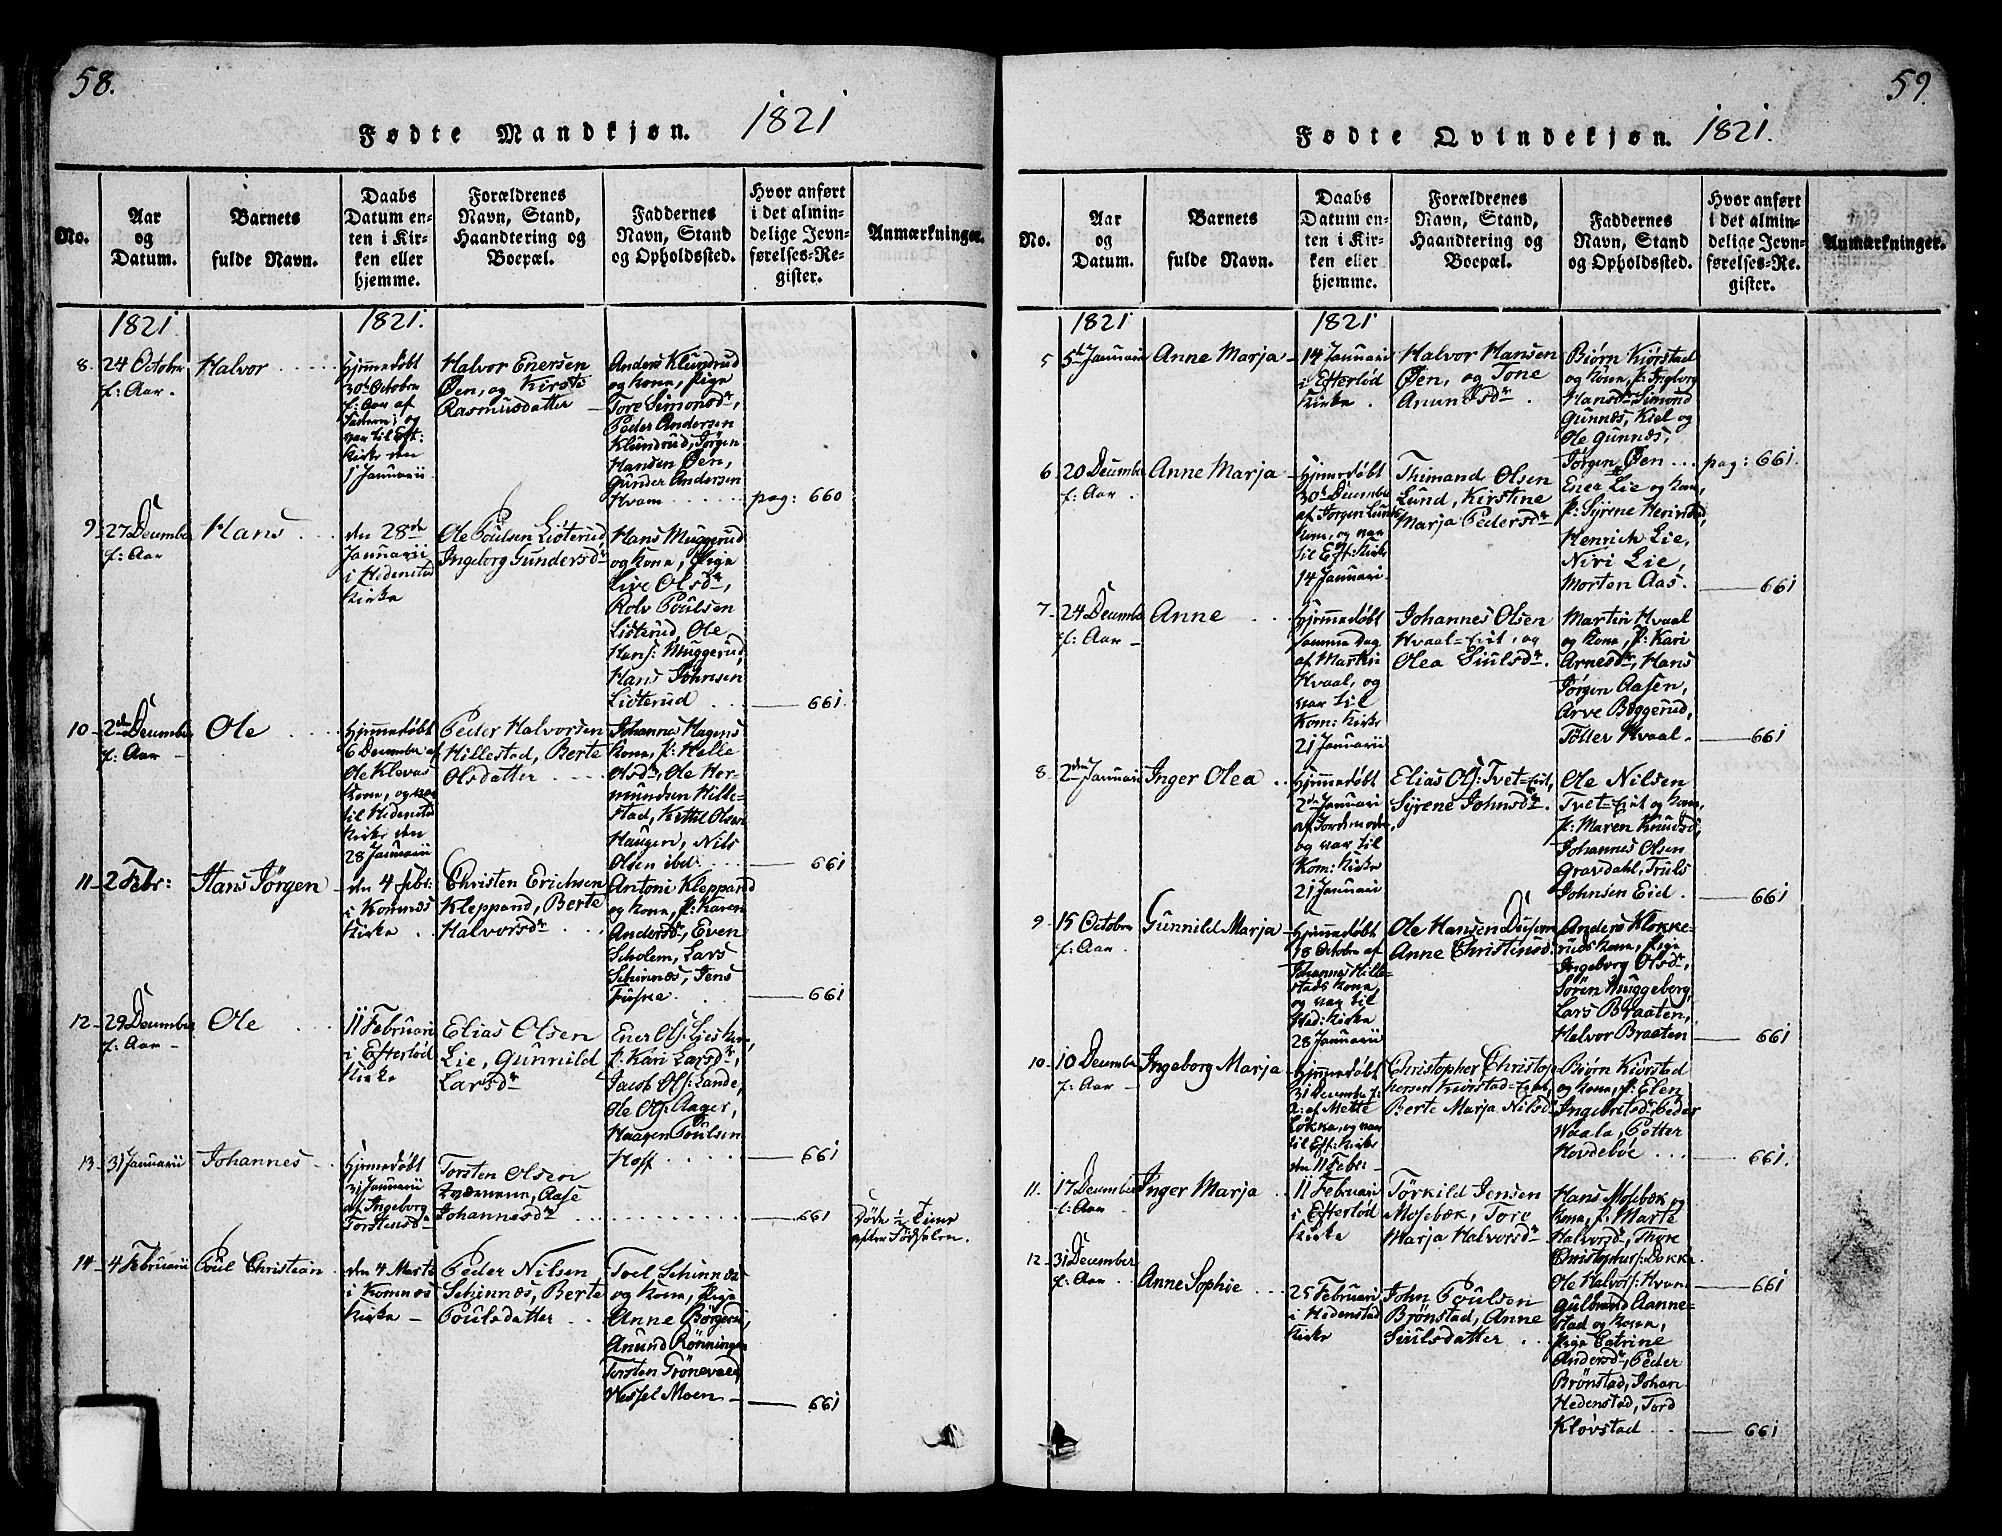 58.
Fødte Mandkjøn. 1821
No.
Aar
og
Datum.
Barnets
fulde Navn.
Daabs
Datum en-
ten i Kir-
ken eller
hjemme.
Forældrenes
Navn, Stand,
Haandtering og
Boepæl.
Faddernes
Navn, Stand
og Opholdssted.
Hvor anført
i det almin-
delige Jevn-
førelses-Re-
gister.
Anmærkninger.
1821
1821.
8. 24 Octobr
f: Aar.
Halvor
Hjemmedøbt
30te Octobre
f: Aar af
og
var til Eft:
Kirke den
1 Januarii
Halvor Enersen
Øen, og Kirsti
Rasmusdatter
Anders Klundrud
og Kone, Pige
Tore Simonsdr,
Peder Andersen
Klundrud, Jørgen
Hansen Øen,
Gunder Andersen
Hvam
pag: 660
9. 27 Decembr
f: Aar
Hans
den 28de
Januarii
i Hedensta
Kirke
Ole Poulsen Listerud,
Ingeborg Gundersdr
Hans Muggerud
og Kone, Pige
Live Olsdr,
Rolv Poulsen
Listerud, Ole
Hans: Muggerud,
Hans Johnsen
Listerud
661.
10 2den Decembr
f: Aar
Ole
Hjemmedøbt
6 Decembr af
Ole Klevas
Kone, og var
til Hedensta
Kirke den
28 Januarii
Peder Halvorsen
Hillestad, Berte
Olsdatter
Johannes Hagens
Kone, P: Helle
Olsdr, Ole Her-
mundsen Hille-
stad, Kittil Olsen
Haugen, Nils
Olsen ibd.
661
11 2 Febr:
Hans Jørgen
den 4 Febr:
i Komnæs
Kirke
Christen Erichsen
Kleppand, Berte
Halvorsdr
Antoni Kleppand
og Kone, P: Karen
Andersdr, Even
Scholem, Lars
Schinnæs, Jens
Fuske.
661
12 29 Decembr
f: Aar
Ole
11 Februari
i Efterlød
Kirke
Elias Olsen
Lie, Gunnild
Larsdr
Ener Ols: Lies Kone,
P: Kari Larsdr,
Jacob Ols: Lande,
Ole Ols: Aager,
Haagen Poulsen
Hoff
661
13 31 Januarii
Johannes
Hjemmedøbt
31 Januarii
af Ingeborg
Torstensdr
Torsten Olsen
Aase
Johannesdr
661
Døde ½ Time
efter Fødselen.
14 4 Februarii
Poul Christian
den 4 Marts
i Komnæs
Kirke
Peder Nilsen
Schinnæs, Berte
Poulsdatter
Toel Schinnæs
og Kone, Pige
Anne Børgerud,
Anund Rönningen
Torsten Grönevold,
Wessel Moen
661
59.
Fødte Qvindekjøn. 1821.
No.
Aar
og
Datum.
Barnets
fulde Navn.
Daabs
Datum en-
ten i Kir-
ken eller
hjemme.
Forældrenes
Navn, Stand,
Haandtering og
Boepæl.
Faddernes
Navn, Stand
og Opholdssted.
Hvor anført
i det almin-
delige Jevn-
førelses-Re-
gister.
Anmærkninger.
1821
1821
5 5te Januarii
Anne Marja
14 Januari
i Efterlød
Kirke
Halvor Hansen
Øen, og Tone
Anunsdr
Biørn Kiörstad
og Kone, P: Ingborg
Hansdr Simond
Gunnæs, Kiel og
Ole Gunnæs,
Jörgen Øen
pag: 661.
6 20 Decembr
f: Aar
Anne Marja
Hjemmedøbt
30te Decembr
af Jørgen Lunds
Kone, og var
til Eft: Kirke
14 Januari
Thimand Olsen
Lund, Kirstine
Marja Pedersdr
Ener Lie og Kone,
P: Syrene
Henrich Lie,
Niri Lie,
Morten Aas.
661
7 24 Decembr
f: Aar
Anne
Hjemmedøbt
samme Dag
af Martin
Hvaal, og
var til
Kom: Kirke
21 Januarii
Johannes Olsen
Hvaal=Eiet, og
Olea Siulsdr.
Martin Hvaal
og Kone, P: Kari
Arnesdr, Hans
Jørgen Aasen,
ArveBöggerud,
Töller Hvaal
661
8 2den Januarii
Inger Olea
Hjemmedøbt
2den Januari
af Jordemoder
og var til
Kom: Kirke
21 Januarii
Elias Ols: Tvet=Eiet,
Syrene Johnsdr.
Ole Nilsen
Tvet=Eiet og Kone,
P: Maren Knudsd:
Johannes Olsen
Gravdahl, Truls
Johnsen Eid.
661
9 15 Octobre
f: Aar
Gunnild Marja
Hjemmedøbt
18 Octobre af
Johannes Hille-
stads Kone,
og var til
Hed: Kirke
28 Januarii
Ole Hansen
Anne Christensd:
Anders Klokke-
ruds Kone, Pige
Ingeborg Olsdr,
Sören Muggeberg,
Lars Braaten,
Halvor Braaten
661
10 10 Decembr
f: Aar
Ingeborg Marja
Hjemmedøbt
31 Decembr f:
A: af Mette
Løkka, og var
til Eft: Kirke
den 11 Febr:
Christopher Christop-
hersen Kiörstad=Eiet,
Berte Marja Nilsd:
Biørn Kiörstad
og Kone, P: Elen
Ingebretsdr, Peder
Waala, Petter
Hovdeböe
661.
11. 17 Decembr
f: Aar
Inger Marja
11 Februari
i Efterlød
Kirke
Törkild Jensen
Mosebæk, Tore
Marja Halvorsdr
Hans Mosebæk og
Kone, P: Marte
Halvorsd:, Thore
Christophers: Løkka
Ole Halvors: Hvam
661
12 31 December
f: Aar
Anne Sophie
25 Februari
i Hedenstad
Kirke
John Poulsen
Brönstad, Anne
Siulsdatter
Gulbrand Aanne-
stad og Kone,
Pige Catrine
Andersdr, Peder
Brönstad, Johan
Hedenstad, Tord
Klövstad
661